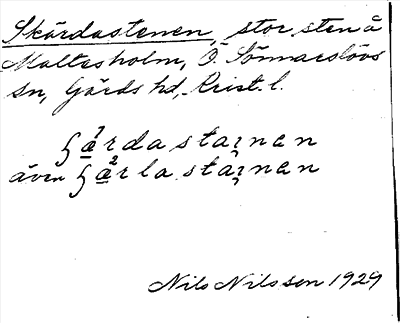 Skärdastenen, stor sten å
Maltesholm, Ö. Sönnarslövs
sn, Gärds hd, Krist. l.
ʃæ²rdastaɪnen
även ʃæ²rla staɪnen
Nils Nilsson 1929